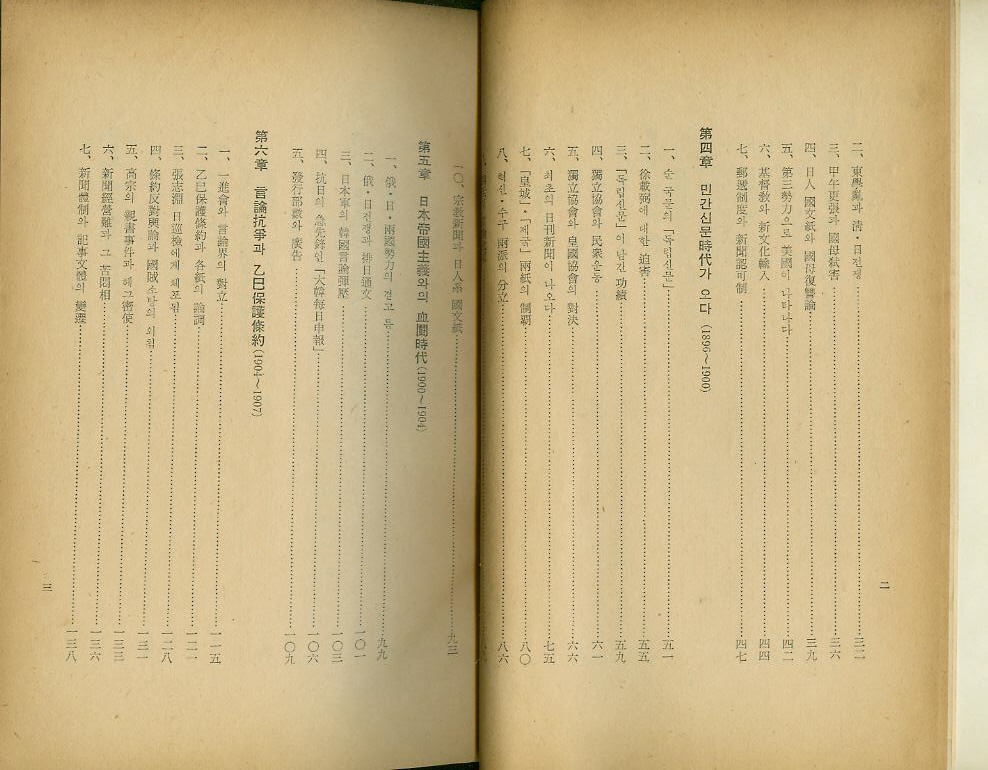 二、東學亂과 淸·日전쟁 三二
三、甲午更張과 國母弑害 三六
四、日人 國文紙와 國母復讐論 三九
五、第三勢力으로 美國이 나타나다 四二
六、基督敎와 新文化輸入 四四
七、郵遞制度와 新聞認可制 四七
第四章 민간신문時代가 오다 (1896~1900)
一、순 국문의 「독립신문」 五一
二、徐載弼에 대한 迫害 五五
三、「독립신문」이 남긴 功績 五九
四、獨立協會와 民衆운동 六一
五、獨立協會와 皇國協會의 對決 六六
六、최초의 日刊新聞이 나오다 七五
七、「皇城」·「제국」 兩紙의 制覇 八〇
八、혁신·수구 兩派의 分立 八六
二
一〇、宗敎新聞과 日人系 國文紙 九三
第五章 日本帝國主義와의 血鬪時代 (1900~1904)
一、俄·日·兩國勢力의 겯고 틈 九九
二、俄·日전쟁과 排日通文 一〇一
三、日本軍의 韓國言論彈壓 一〇三
四、抗日의 急先鋒인 「大韓每日申報」 一〇六
五、發行部數와 廣告 一〇九
第六章 言論抗爭과 乙巳保護條約 (1904~1907)
一、一進會와 言論界의 對立 一一五
二、乙巳保護條約과 各紙의 論調 一二一
三、張志淵 日巡檢에게 체포됨 一二八
四、條約反對輿論과 國賊소탕의 외침 一三一
五、高宗의 親書事件과 헤그密使 一三三
六、新聞經營難과 그 苦悶相 一三六
七、新聞體制와 記事文體의 變遷 一三八
三